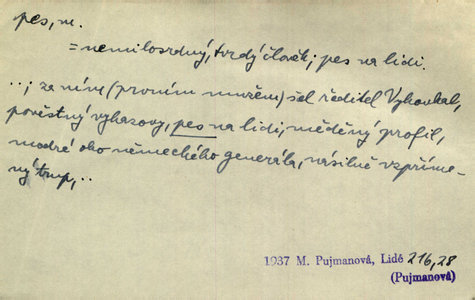 pes, m.
= nemilosrdný, tvrdý člověk; pes na lidi.
..; za ním (prvním mužem) šel ředitel Vykoukal,
pověstný vyhazovy, pes na lidi, měděný profil,
modré oko německého generála, násilně vzpříme-
ný trup, ..
1937 M. Pujmanová, Lidé 216,28
(Pujmanová)